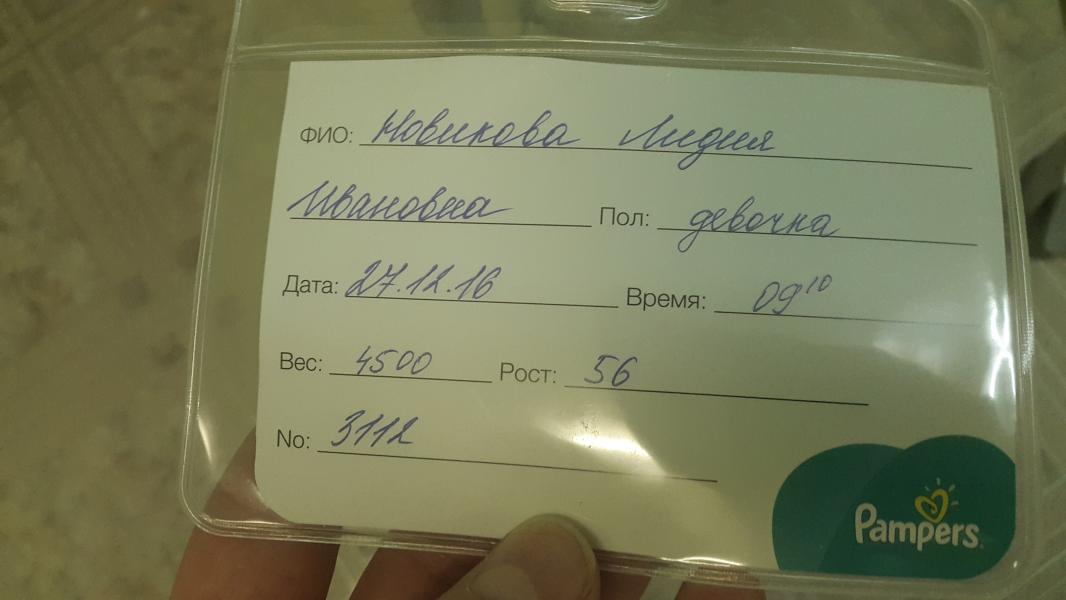 ФИО: Новикова Лидия
Ивановна Пол: девочка
Дата: 27.12.16 Время: 09¹⁰
Вес: 4500 Рост: 56
No: 3112
Pampers